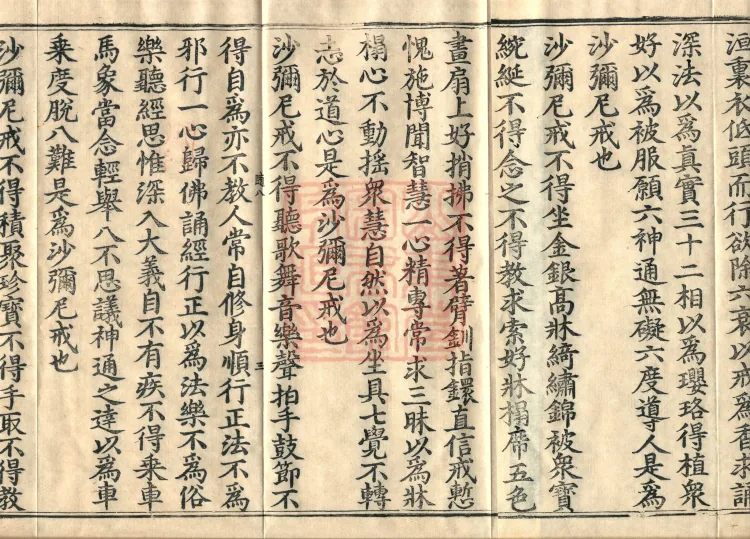 洹裏衣低頭而行欲除六衰以戒爲香求誦
深法以爲眞實三十二相以爲瓔珞得植衆
好以爲被服願六神通無礙六度導人是爲
沙彌尼戒也
沙彌尼戒不得坐金銀高牀綺繡錦被衆寶
綩綖不得念之不得教求索好牀榻席五色
畫扇上好拂不得著臂釧指鐶直信戒慙
愧施博聞智慧一心精專常求三昧以爲牀
榻心不動揺衆慧自然以爲坐具七覺不轉
志於道心是爲沙彌尼戒也
沙彌尼戒不得聽歌舞音樂聲拍手鼓節不
得自爲亦不教人常自修身順行正法不爲
邪行一心歸佛誦經行正以爲法樂不爲俗
樂聽經思惟深入大義自不有疾不得乘車
馬象當念輕舉八不思議神通之達以爲車
乘度脫八難是爲沙彌尼戒也
沙彌尼戒不得積聚珍寶不得手取不得教